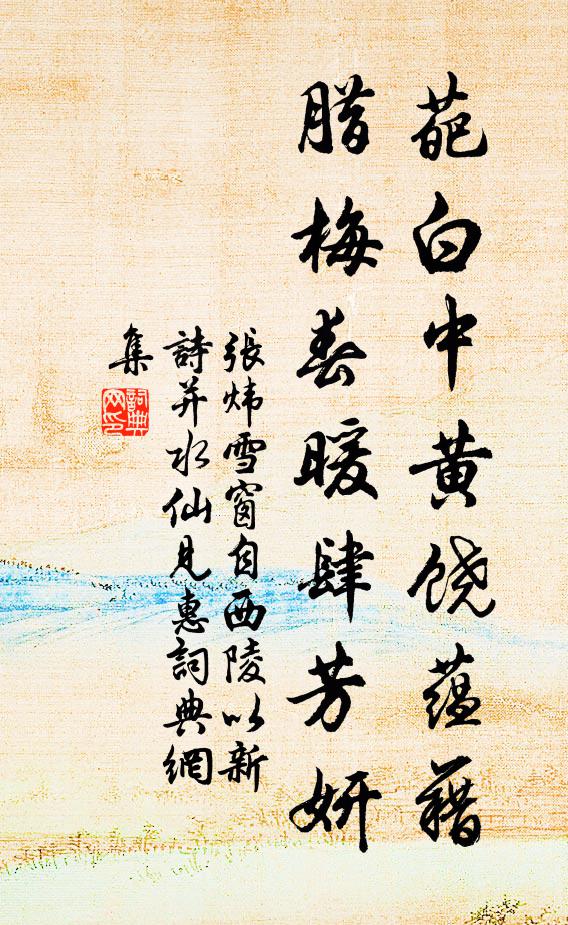 葩白中黄饶蕴藉
腊梅春暖肆芳妍
張炜雪窗自西陵以新
詩并水仙見惠詞典網
集
詞典
网印